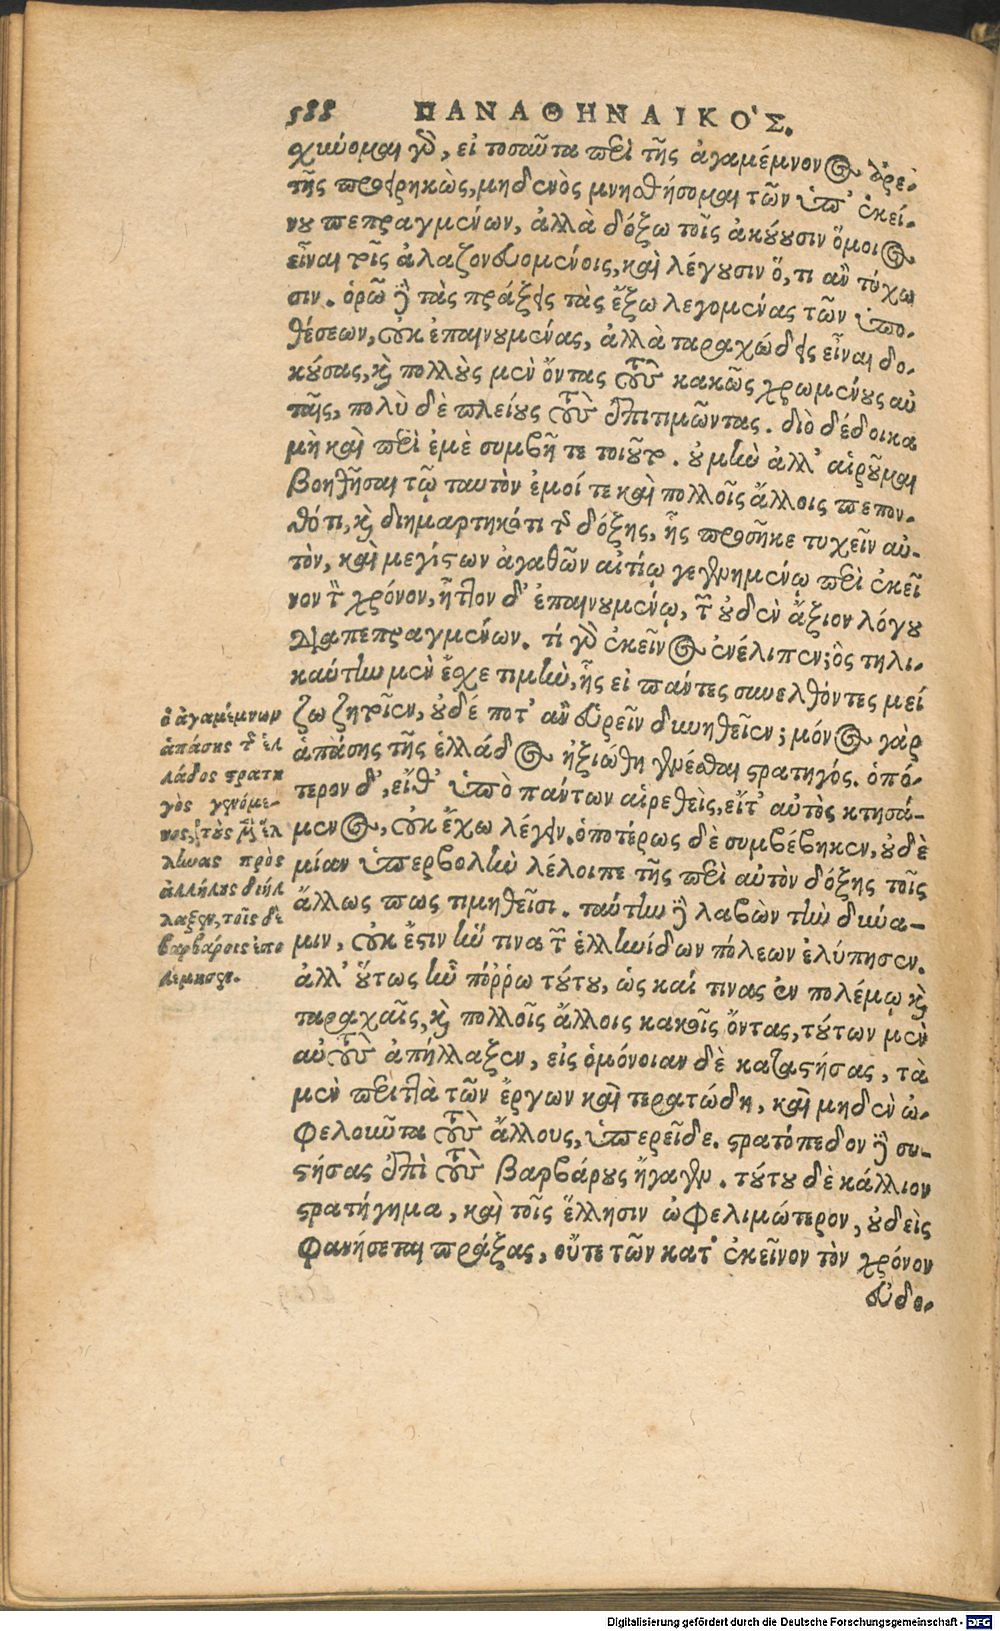 588 ΠΑΝΑΘΗΝΑΙΚΟ'Σ.
σχιύομαι γὰρ, εἰ τοσαῦτα περὶ τῆς ἀγαμέμνονος ἀρε-
τῆς προειρηκὼς, μηδενὸς μνησθήσομαι τῶν ὑπ' ἐκεί-
νου πεπραγμένων, ἀλλὰ δόξω τοῖς ἀκούουσιν ὅμοιος
εἶναι τοῖς ἀλαζονευομένοις, καὶ λέγουσιν ὅ, τι ἂν τύχω
σιν. ὁρῶ δὲ τὰς πράξεις τὰς ἔξω λεγομένας τῶν ὑπο-
θέσεων, οὐκ ἐπαινουμένας, ἀλλὰ ταραχώδεις εἶναι δο-
κούσας, καὶ πολλοὺς μὲν ὄντας τοὺς κακῶς χρωμένους αὐ
ταῖς, πολὺ δὲ πλείους τοὺς ἐπιτιμῶντας. διὸ δέδοικα
μὴ καὶ περὶ ἐμὲ συμβῇ τε τοιοῦτο. οὐ μὴν ἀλλ' αἱροῦμαι
βοηθῆσαι τῷ ταυτὸν ἐμοί τε καὶ πολλοῖς ἄλλοις πεπον-
θότι, καὶ διημαρτηκότι τῆς δόξης, ἧς προσῆκε τυχεῖν αὐ-
τὸν, καὶ μεγίστων ἀγαθῶν αἰτίῳ γεγενημένῳ περὶ ἐκεῖ
νον τὸν χρόνον, ἧττον δ' ἐπαινουμένῳ, τῶν οὐδὲν ἄξιον λόγου
διαπεπραγμένων. τί γὰρ ἐκεῖνος ἐνέλιπεν; ὃς τηλι-
καύτην μὲν ἔσχε τιμὴν, ἧς εἰ πάντες συνελθόντες μεί
ζω ζητοῖεν, οὐδέ ποτ' ἂν εὑρεῖν δυνηθεῖεν; μόνος γὰρ
ἁπάσης τῆς ἑλλάδος ἠξιώθη γενέσθαι στρατηγός. ὁπό-
τερον δ', εἴθ' ὑπὸ πάντων αἱρεθεὶς, εἴτ' αὐτὸς κτησά-
μενος, οὐκ ἔχω λέγειν. ὁποτέρως δὲ συμβέβηκεν, οὐδὲ
μίαν ὑπερβολὴν λέλοιπε τῆς περὶ αὐτὸν δόξης τοῖς
ἄλλως πως τιμηθεῖσι. ταύτην δὲ λαβὼν τὴν δύνα-
μιν, οὐκ ἔστιν ἥν τινα τῶν ἑλληνίδων πόλεων ἐλύπησεν.
ἀλλ' οὕτως ἦν πόῤῥω τούτου, ὡς καί τινας ἐν πολέμῳ καὶ
ταραχαῖς, καὶ πολλοῖς ἄλλοις κακοῖς ὄντας, τούτων μὲν
αὐτοὺς ἀπήλλαξεν, εἰς ὁμόνοιαν δὲ καταστήσας, τὰ
μὲν περιττὰ τῶν ἔργων καὶ τερατώδη, καὶ μηδὲν ὠ-
φελοῦντα τοὺς ἄλλους, ὑπερεῖδε. στρατόπεδον δὲ συ-
στήσας ἐπὶ τοὺς βαρβάρους ἤγαγεν. τούτου δὲ κάλλιον
στρατήγημα, καὶ τοῖς ἕλλησιν ὠφελιμώτερον, οὐδεὶς
φανήσεται πράξας, οὔτε τῶν κατ' ἐκεῖνον τὸν χρόνον
εὐδο-
ὁ ἀγαμέμνων
ἁπάσης τῆς ἑλ
λάδος στρατη
γὸς γενόμε-
νος, τοὺς μὲν ἕλ
ληνας πρὸς
ἀλλήλους διήλ
λαξεν, τοῖς δὲ
βαρβάροις ἐπο
λέμησεν.
Digitalisierung gefördert durch die Deutsche Forschungsgemeinschaft - DFG